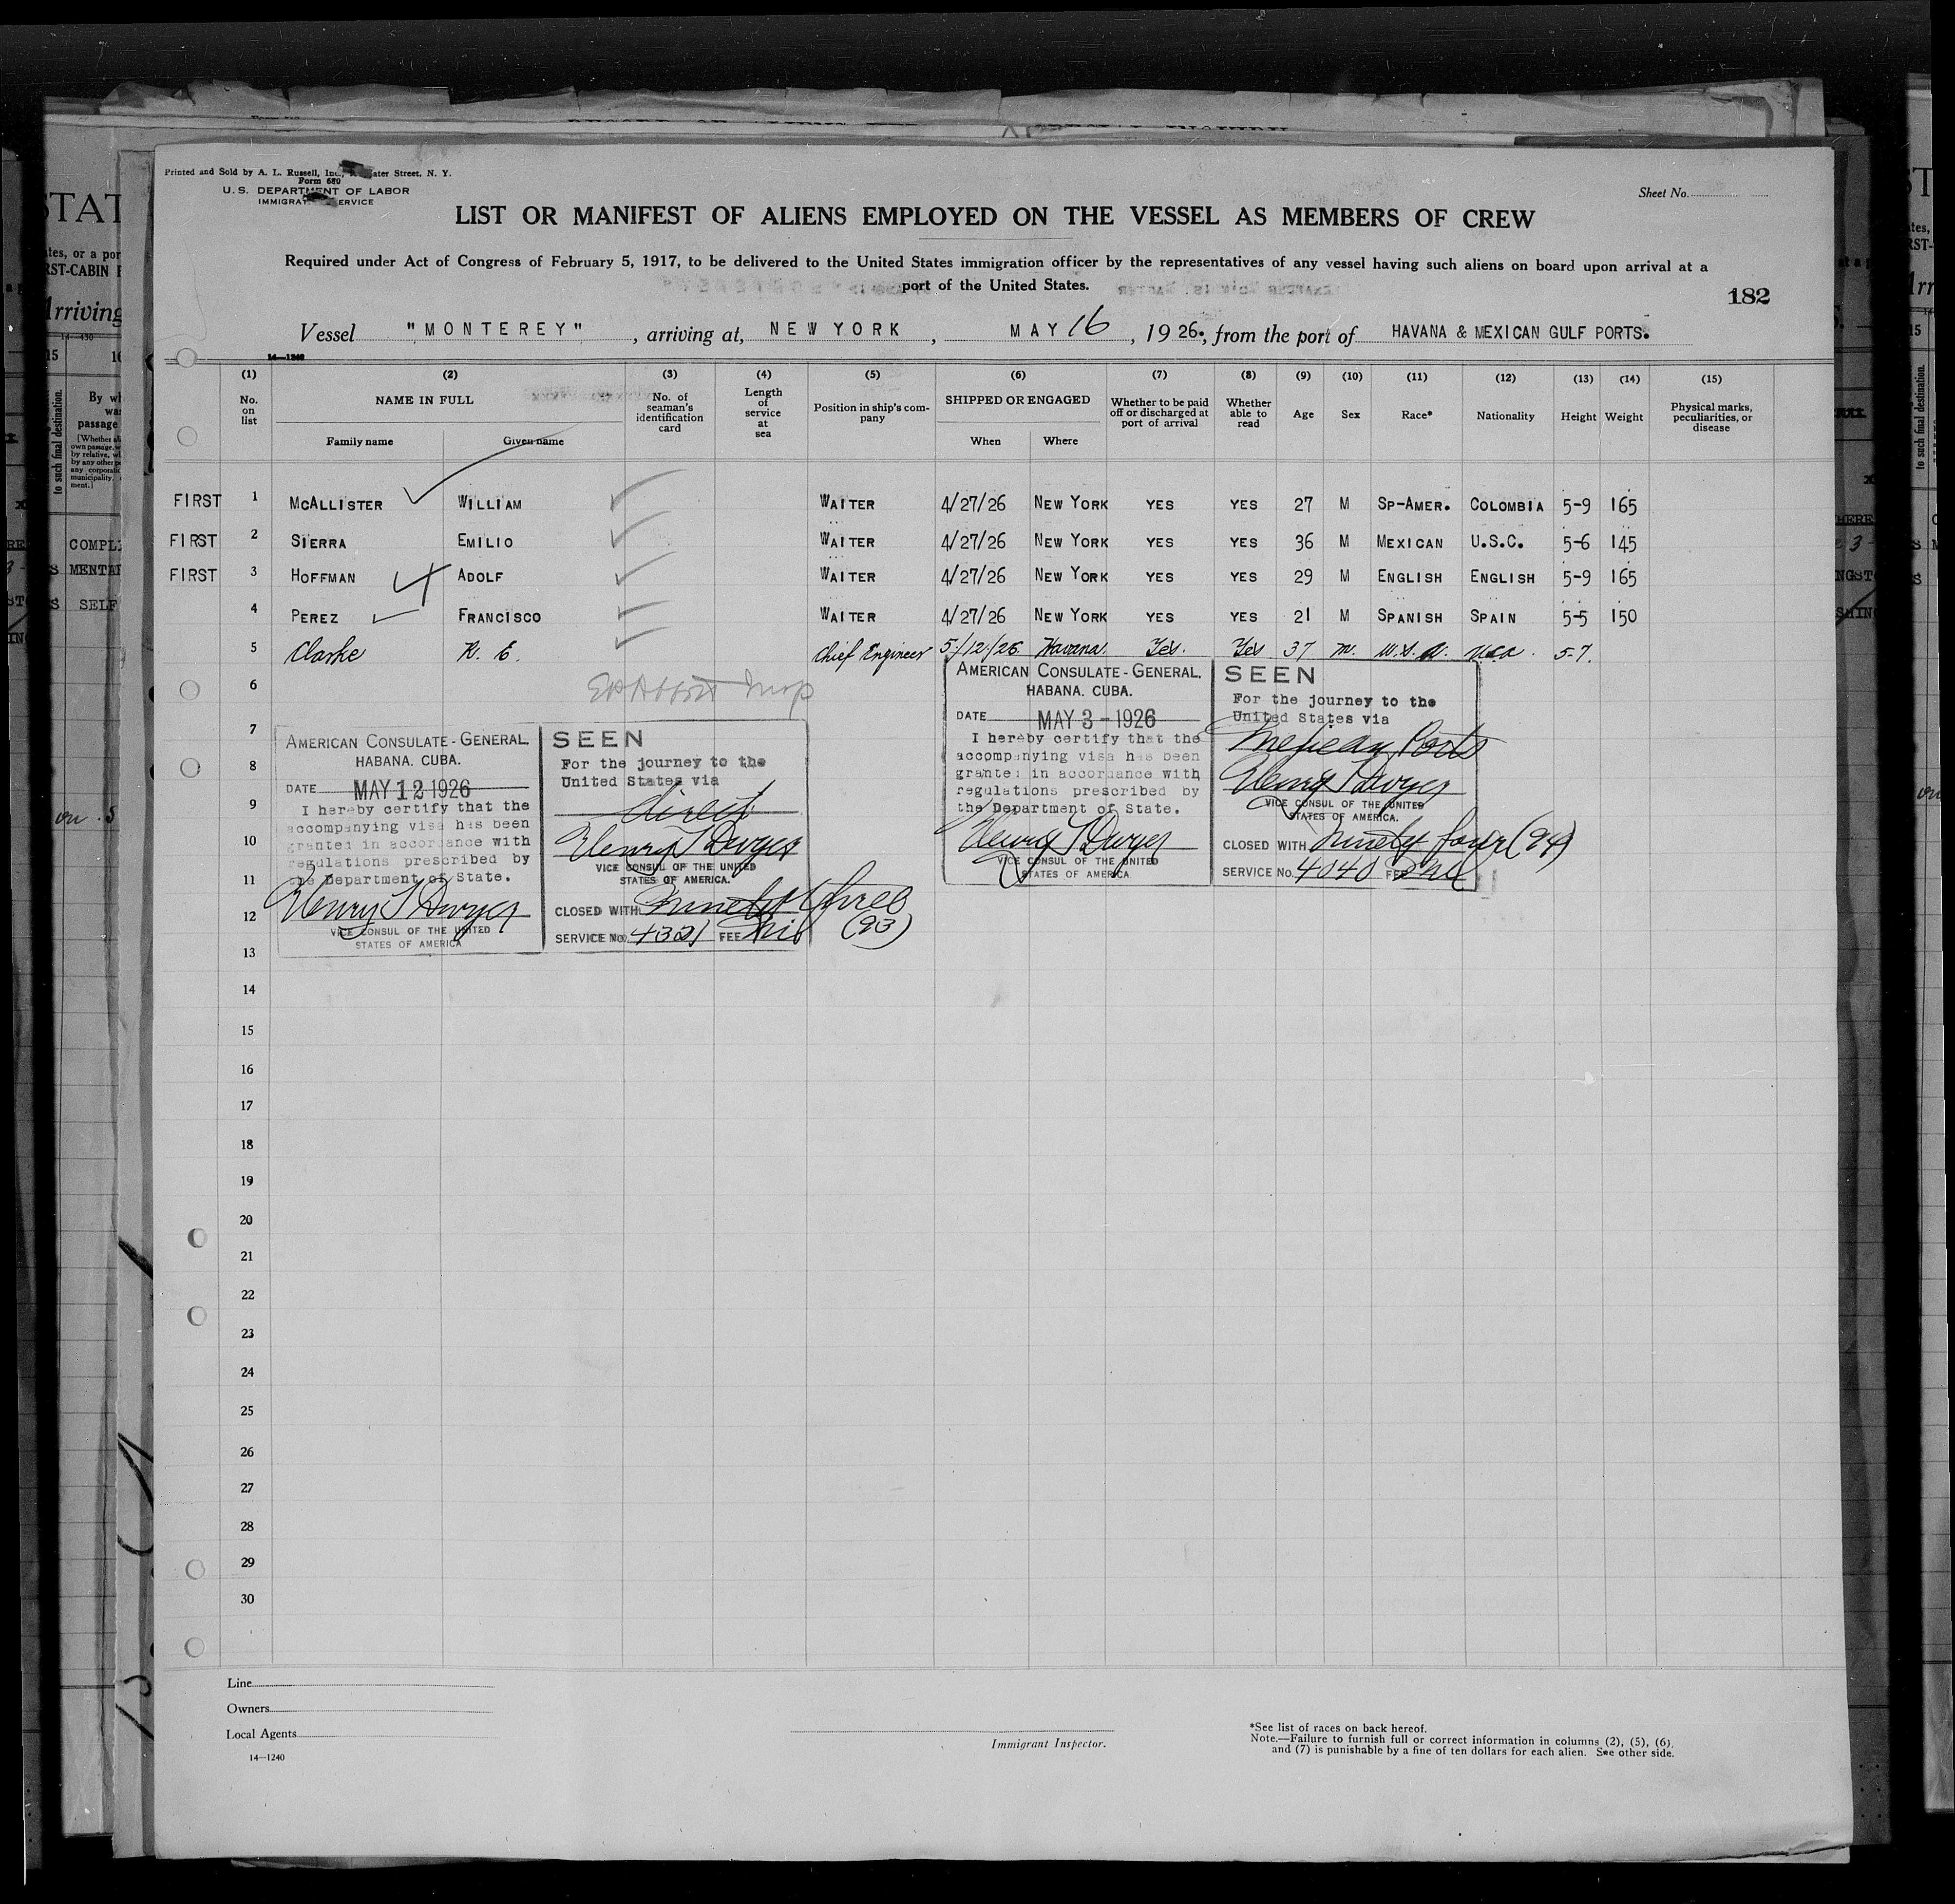 Printed and Sold by A. L. Russell, Inc., Water Street, N. Y.
Form 680
U. S. DEPARTMENT OF LABOR
IMMIGRATION SERVICE
Sheet No.
LIST OR MANIFEST OF ALIENS EMPLOYED ON THE VESSEL AS MEMBERS OF CREW
Required under Act of Congress of February 5, 1917, to be delivered to the United States immigration officer by the representatives of any vessel having such aliens on board upon arrival at a
port of the United States.
182
Vessel "MONTEREY", arriving at, NEW YORK, MAY 16, 1926, from the port of HAVANA & MEXICAN GULF PORTS.
14—1240
(1) (2) (3) (4) (5) (6) (7) (8) (9) (10) (11) (12) (13) (14) (15)
No. on list
NAME IN FULL
Family name
Given name
No. of seaman's identification card
Length of service at sea
Position in ship's company
SHIPPED OR ENGAGED
When
Where
Whether to be paid off or discharged at port of arrival
Whether able to read
Age
Sex
Race*
Nationality
Height
Weight
Physical marks, peculiarities, or disease
FIRST 1 McALLISTER WILLIAM WAITER 4/27/26 NEW YORK YES YES 27 M SP-AMER. COLOMBIA 5-9 165
FIRST 2 SIERRA EMILIO WAITER 4/27/26 NEW YORK YES YES 36 M MEXICAN U.S.C. 5-6 145
FIRST 3 HOFFMAN ADOLF WAITER 4/27/26 NEW YORK YES YES 29 M ENGLISH ENGLISH 5-9 165
4 PEREZ FRANCISCO WAITER 4/27/26 NEW YORK YES YES 21 M SPANISH SPAIN 5-5 150
5 Clarke R. E. Chief Engineer 5/12/26 Havana. Yes. Yes 37 m. U.S.A. USA. 5-7.
6
7
8
9
10
11
12
13
14
15
16
17
18
19
20
21
22
23
24
25
26
27
28
29
30
AMERICAN CONSULATE-GENERAL,
HABANA. CUBA.
DATE MAY 3-1926
I hereby certify that the
accompanying visa has been
granted in accordance with
regulations prescribed by
the Department of State.
Henry T Dwyer
VICE CONSUL OF THE UNITED
STATES OF AMERICA
SEEN
For the journey to the
United States via
Mexican Ports
Henry T Dwyer
VICE CONSUL OF THE UNITED
STATES OF AMERICA.
CLOSED WITH ninety four (94)
SERVICE No. 4040 FEE nil
AMERICAN CONSULATE-GENERAL.
HABANA. CUBA.
DATE MAY 12 1926
I hereby certify that the
accompanying visa has been
granted in accordance with
regulations prescribed by
the Department of State.
Henry T Dwyer
VICE CONSUL OF THE UNITED
STATES OF AMERICA
SEEN
For the journey to the
United States via
direct
Henry T Dwyer
VICE CONSUL OF THE UNITED
STATES OF AMERICA.
CLOSED WITH ninety three
(93)
SERVICE No. 4321 FEE nil
Line
Owners
Local Agents
14—1240
Immigrant Inspector.
*See list of races on back hereof.
Note.—Failure to furnish full or correct information in columns (2), (5), (6),
and (7) is punishable by a fine of ten dollars for each alien. See other side.